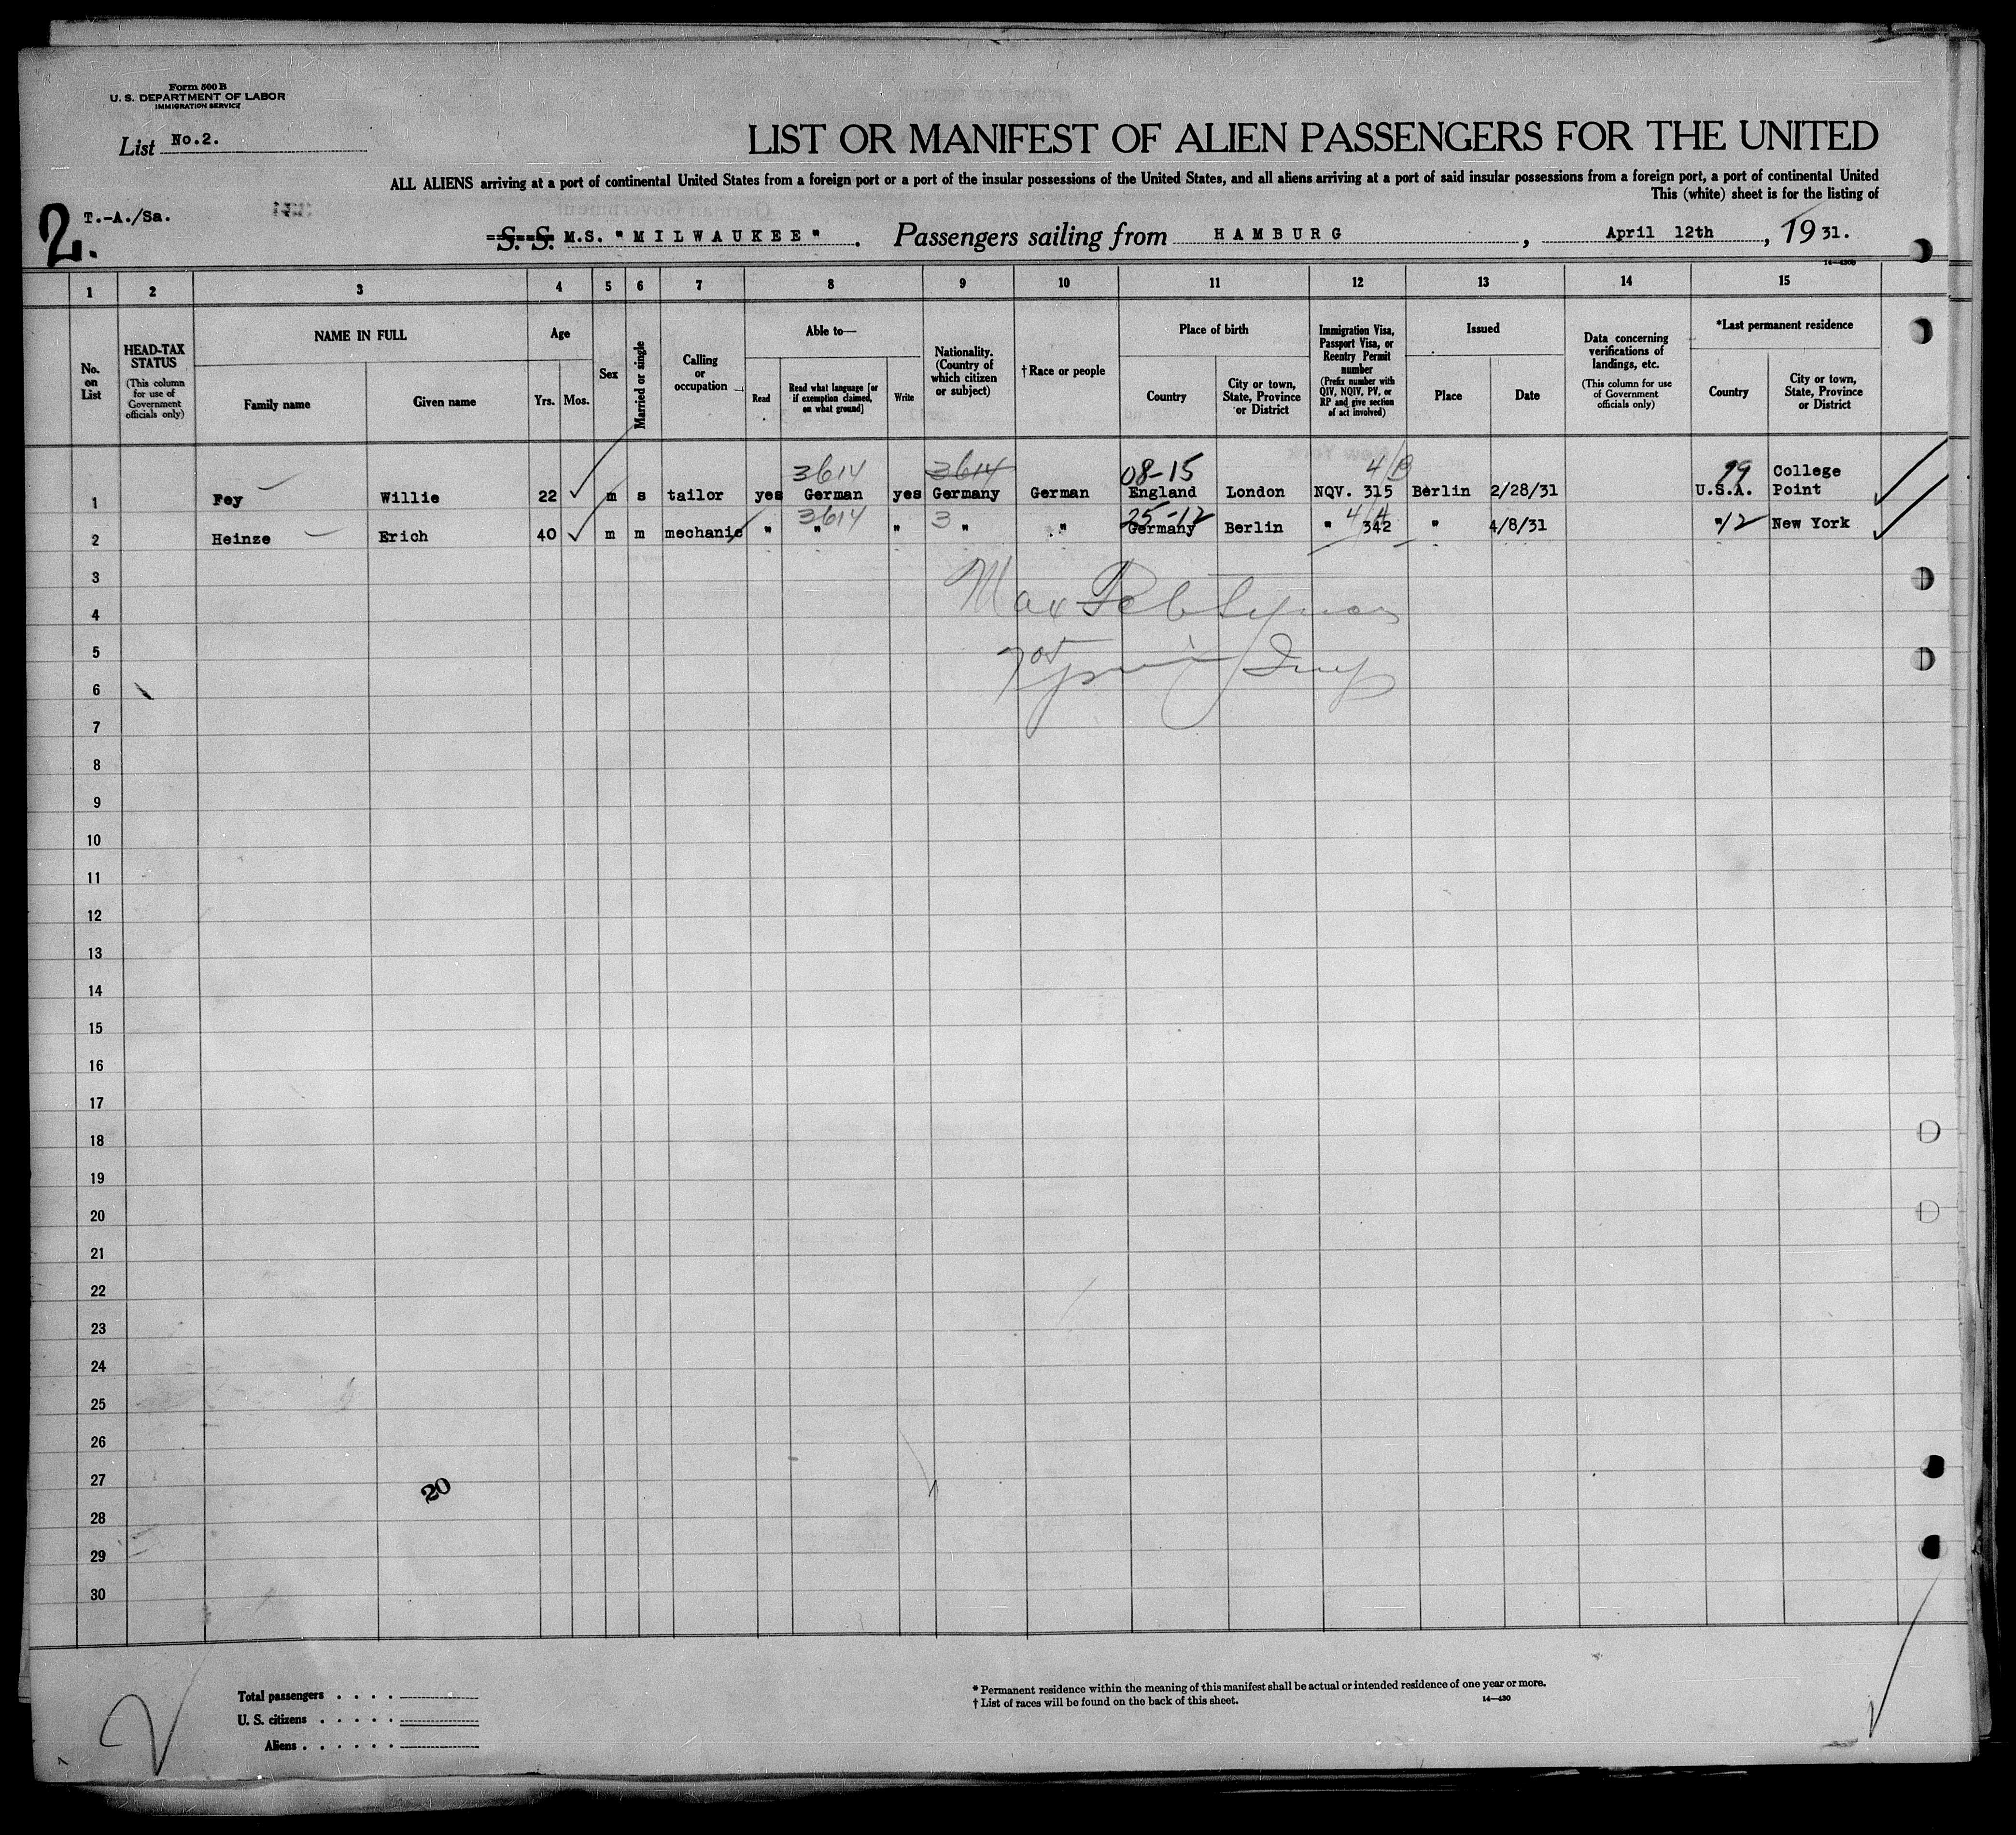 Form 500 B
U. S. DEPARTMENT OF LABOR
IMMIGRATION SERVICE
List No.2.
LIST OR MANIFEST OF ALIEN PASSENGERS FOR THE UNITED
ALL ALIENS arriving at a port of continental United States from a foreign port or a port of the insular possessions of the United States, and all aliens arriving at a port of said insular possessions from a foreign port, a port of continental United
This (white) sheet is for the listing of
2. T.-A./Sa.
S. S. M.S. "MILWAUKEE". Passengers sailing from HAMBURG, April 12th, 1931.
14-430B
1 2 3 4 5 6 7 8 9 10 11 12 13 14 15
No. on List
HEAD-TAX STATUS (This column for use of Government officials only)
NAME IN FULL
Family name Given name
Age
Yrs. Mos.
Sex
Married or single
Calling or occupation
Able to—
Read Read what language [or if exemption claimed, on what ground] Write
Nationality. (Country of which citizen or subject)
†Race or people
Place of birth
Country City or town, State, Province or District
Immigration Visa, Passport Visa, or Reentry Permit number (Prefix number with QIV, NQIV, PV, or RP and give section of act involved)
Issued
Place Date
Data concerning verifications of landings, etc. (This column for use of Government officials only)
*Last permanent residence
Country City or town, State, Province or District
3614 3614 08-15 4/B 99
1 Fey Willie 22 m s tailor yes German yes Germany German England London NQV. 315 Berlin 2/28/31 U.S.A. College Point
3614 3 25-12 4/A 12
2 Heinze Erich 40 m m mechanic " " " " " Germany Berlin " 342 " 4/8/31 " New York
3
Max
4
5
6
7
8
9
10
11
12
13
14
15
16
17
18
19
20
21
22
23
24
25
26
27
20
28
29
30
Total passengers
U. S. citizens
Aliens
* Permanent residence within the meaning of this manifest shall be actual or intended residence of one year or more.
† List of races will be found on the back of this sheet. 14-430